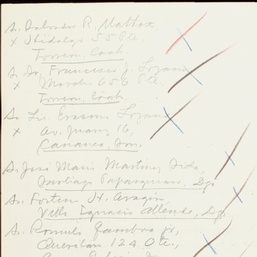 S. Salvador R. Mattox
x Hidalgo 55 Pte.,
Torreon, Coah
S. Dr. Francisco J. Lozano
x Morelos 656 Pte.
Torreon, Coah
S. Lic. Erasmo Lozano
x Av. Juarez 16,
Cananea, Son.
S. José María Martínez
Santiago Papasquiaro, Dgo
S. Fortino H. Aragon
Villa Ignacio Allende, Dgo
S. Romulo Gamboa Jr,
124 Ote,